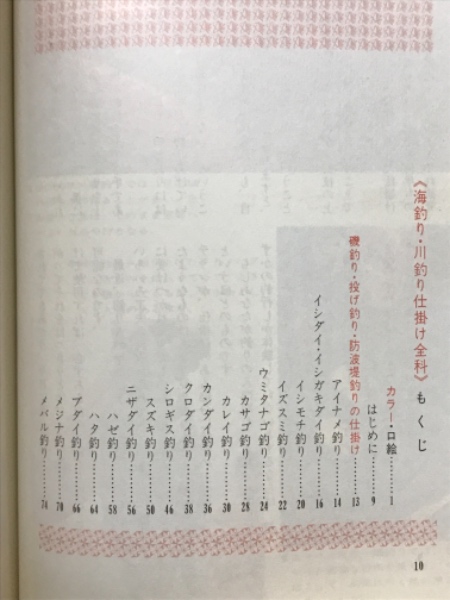 《海釣り・川釣り仕掛け全科》もくじ
カラー・口絵……1
はじめに……9
磯釣り・投げ釣り・防波堤釣りの仕掛け……13
アイナメ釣り……14
イシダイ・イシガキダイ釣り……16
イシモチ釣り……20
イズスミ釣り……22
ウミタナゴ釣り……24
カサゴ釣り……28
カレイ釣り……30
カンダイ釣り……36
クロダイ釣り……38
シロギス釣り……46
スズキ釣り……50
ニザダイ釣り……56
ハゼ釣り……58
ハタ釣り……64
ブダイ釣り……66
メジナ釣り……70
メバル釣り……74
10